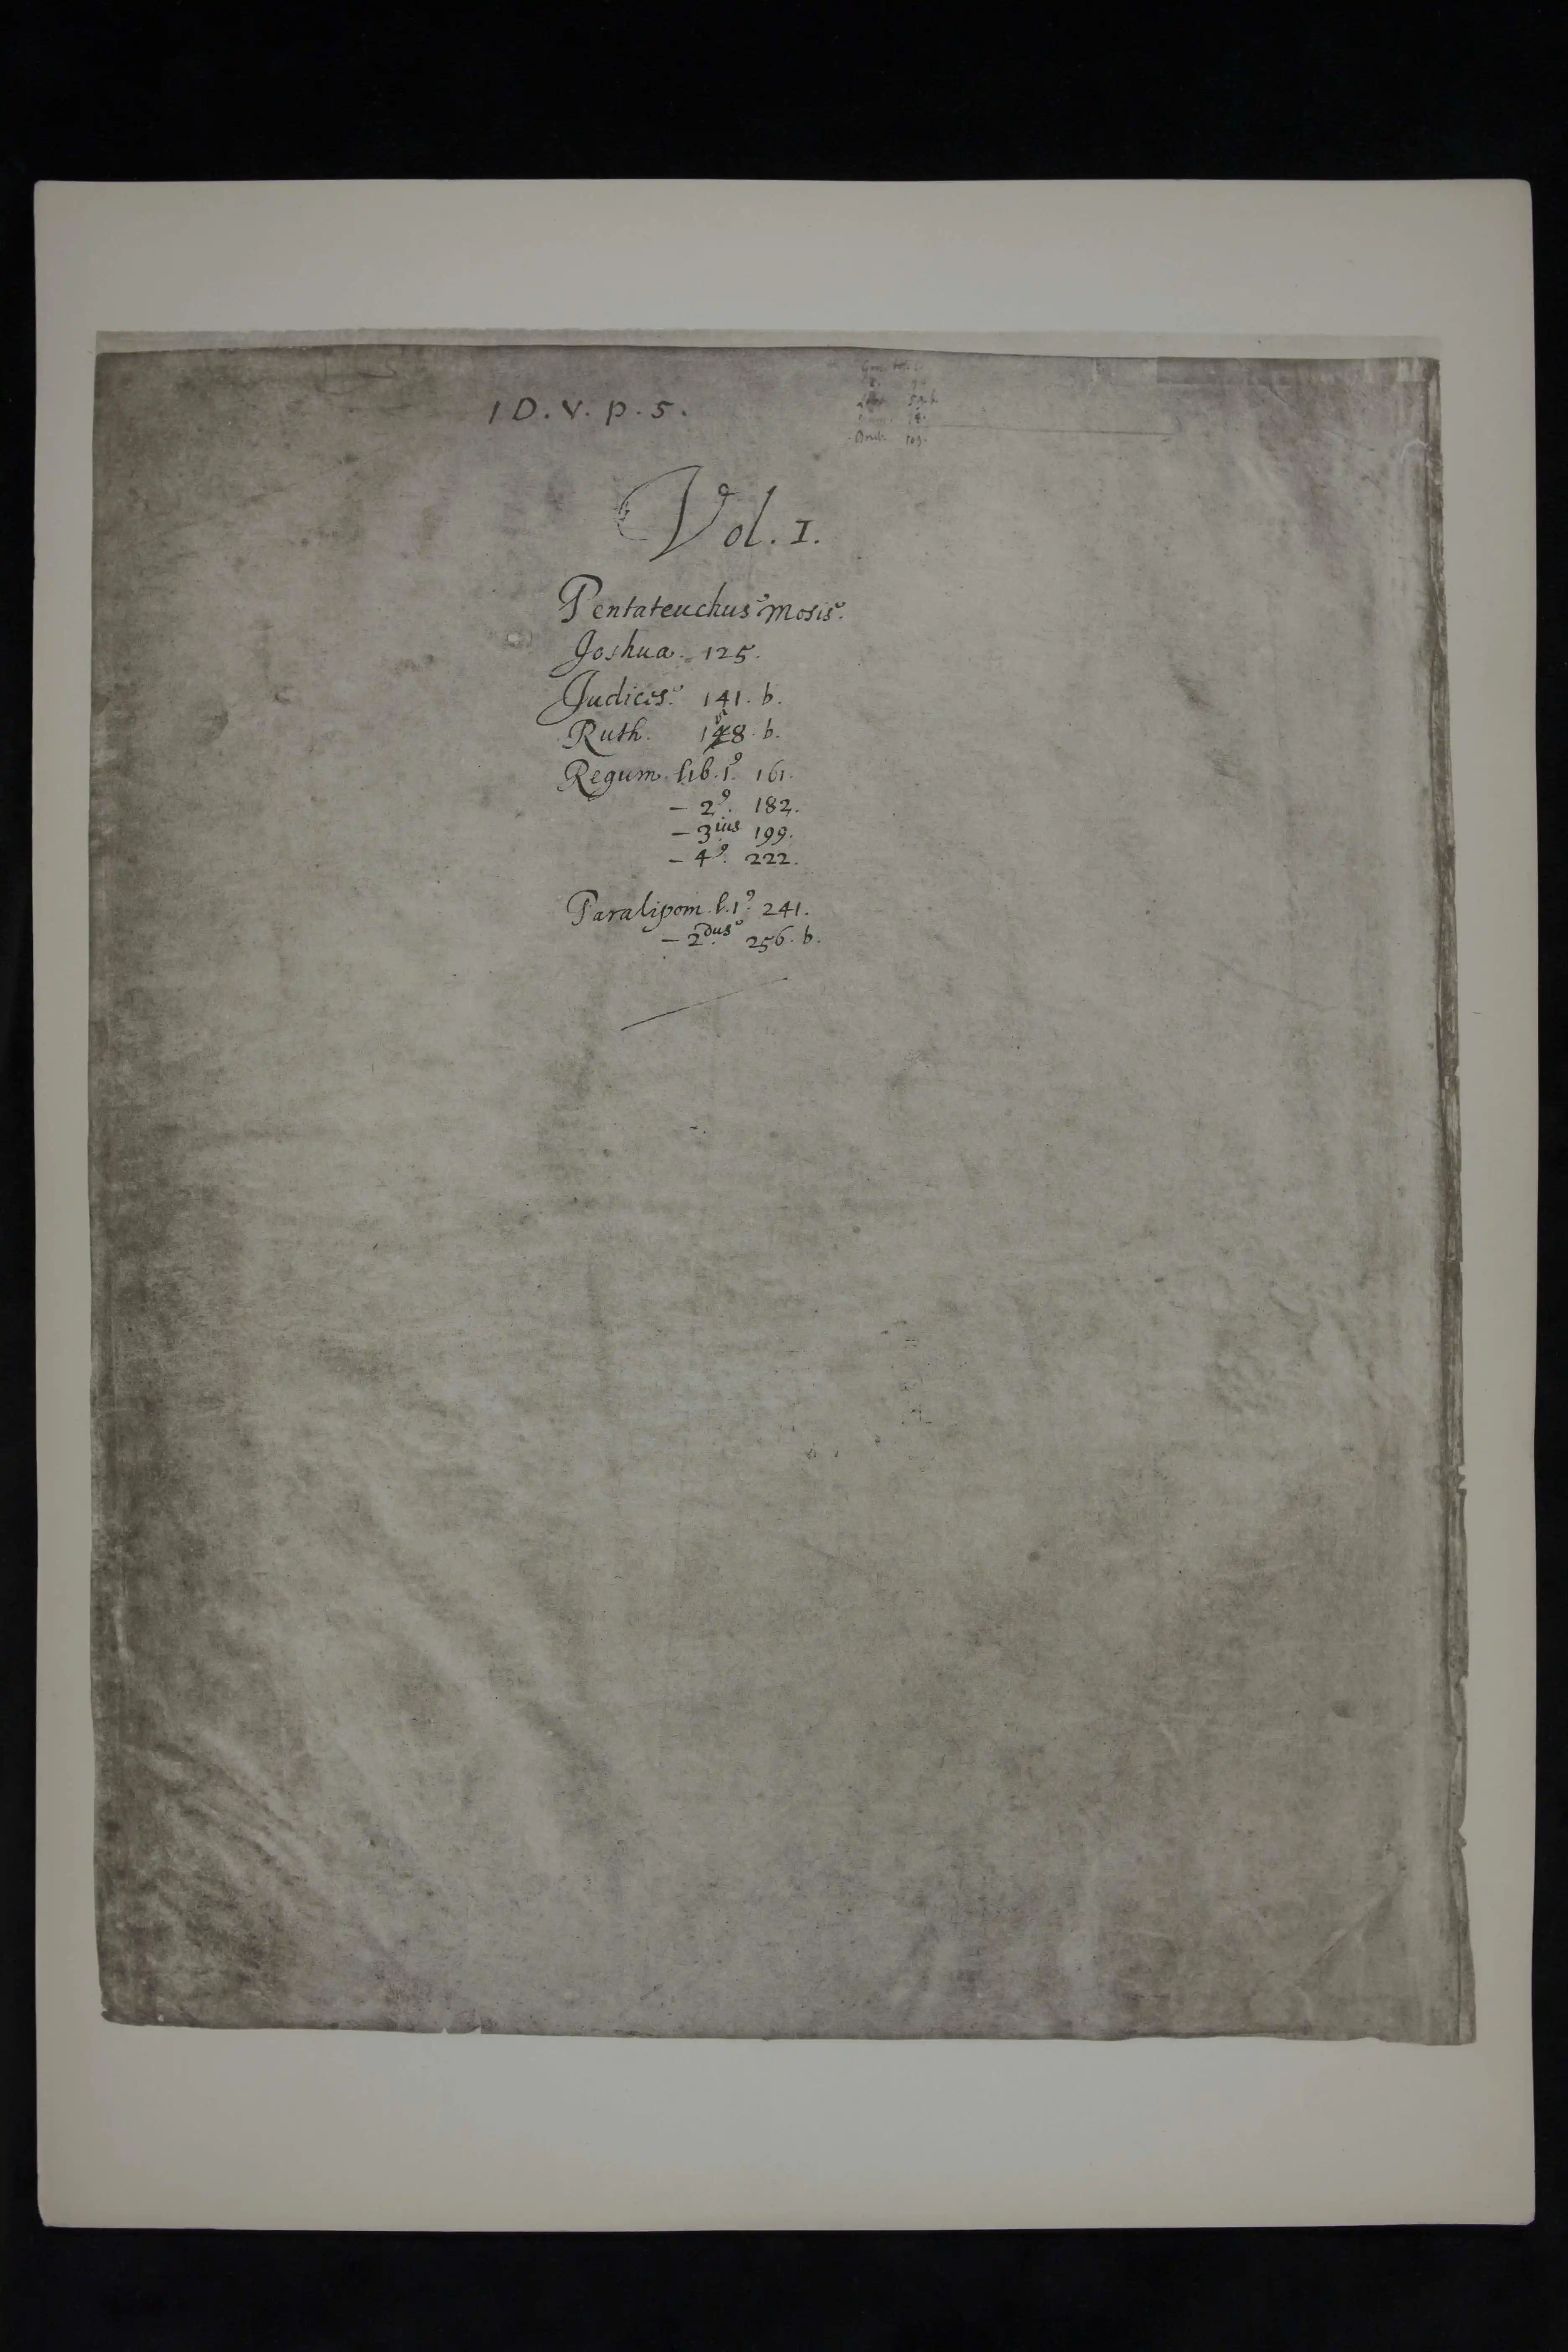 1 D. V. p. 5.
59. b.
Deut. 109.
Vol. I.
Pentateuchus Mosis.
Joshua. 125.
Judices. 141. b.
Ruth. 158. b.
Regum lib. 1º. 161.
– 2º. 182.
– 3ius 199.
– 4º. 222.
Paralipom. l. 1º. 241.
– 2dus 256. b.